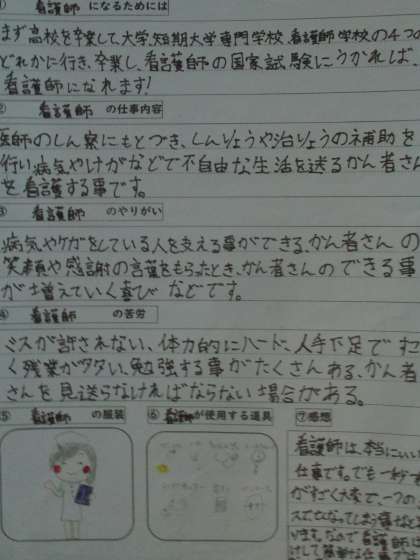 ① 看護師 になるためには
まず高校を卒業して、大学、短期大学専門学校、看護師学校の4つの
どれかに行き、卒業し、看護師の国家試験にうかれば、
看護師になれます!
② 看護師 の仕事内容
医師のしん察にもとづき、しんりょうや治りょうの補助を
行い病気やけがなどで不自由な生活を送るかん者さん
を看護する事です。
③ 看護師 のやりがい
病気やケガをしている人を支える事ができる、かん者さんの
笑顔や感謝の言葉をもらったとき、かん者さんのできる事
が増えていく喜び などです。
④ 看護師 の苦労
ミスが許されない、体力的にハード、人手不足ですご
く残業が多い、勉強する事がたくさんある、かん者
さんを見送らなければならない場合がある。
⑤ 看護師 の服装
⑥ 看護師が使用する道具
⑦感想
看護師は、本当にいい
仕事です。でも
がすごく大変で、一つの
スで亡くなってしまう事
います。なので看護師